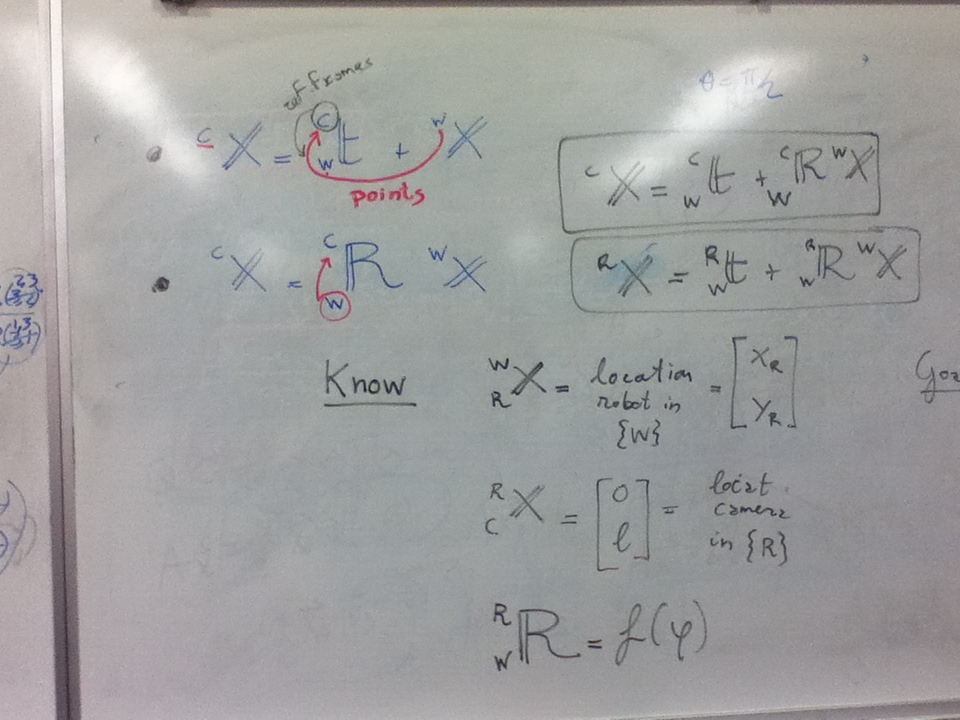 ref frames
θ = π/2
• ᶜX = ᶜ_W t + ᵂX
points
ᶜX = ᶜ_W t + ᶜ_W R ᵂX
• ᶜX = ᶜ_W R ᵂX
ᴿX = ᴿ_W t + ᴿ_W R ᵂX
Know
ᵂ_R X = location robot in {W} = [X_R Y_R]
ᴿ_C X = [0 l] = locat. camera in {R}
ᴿ_W R = f(φ)